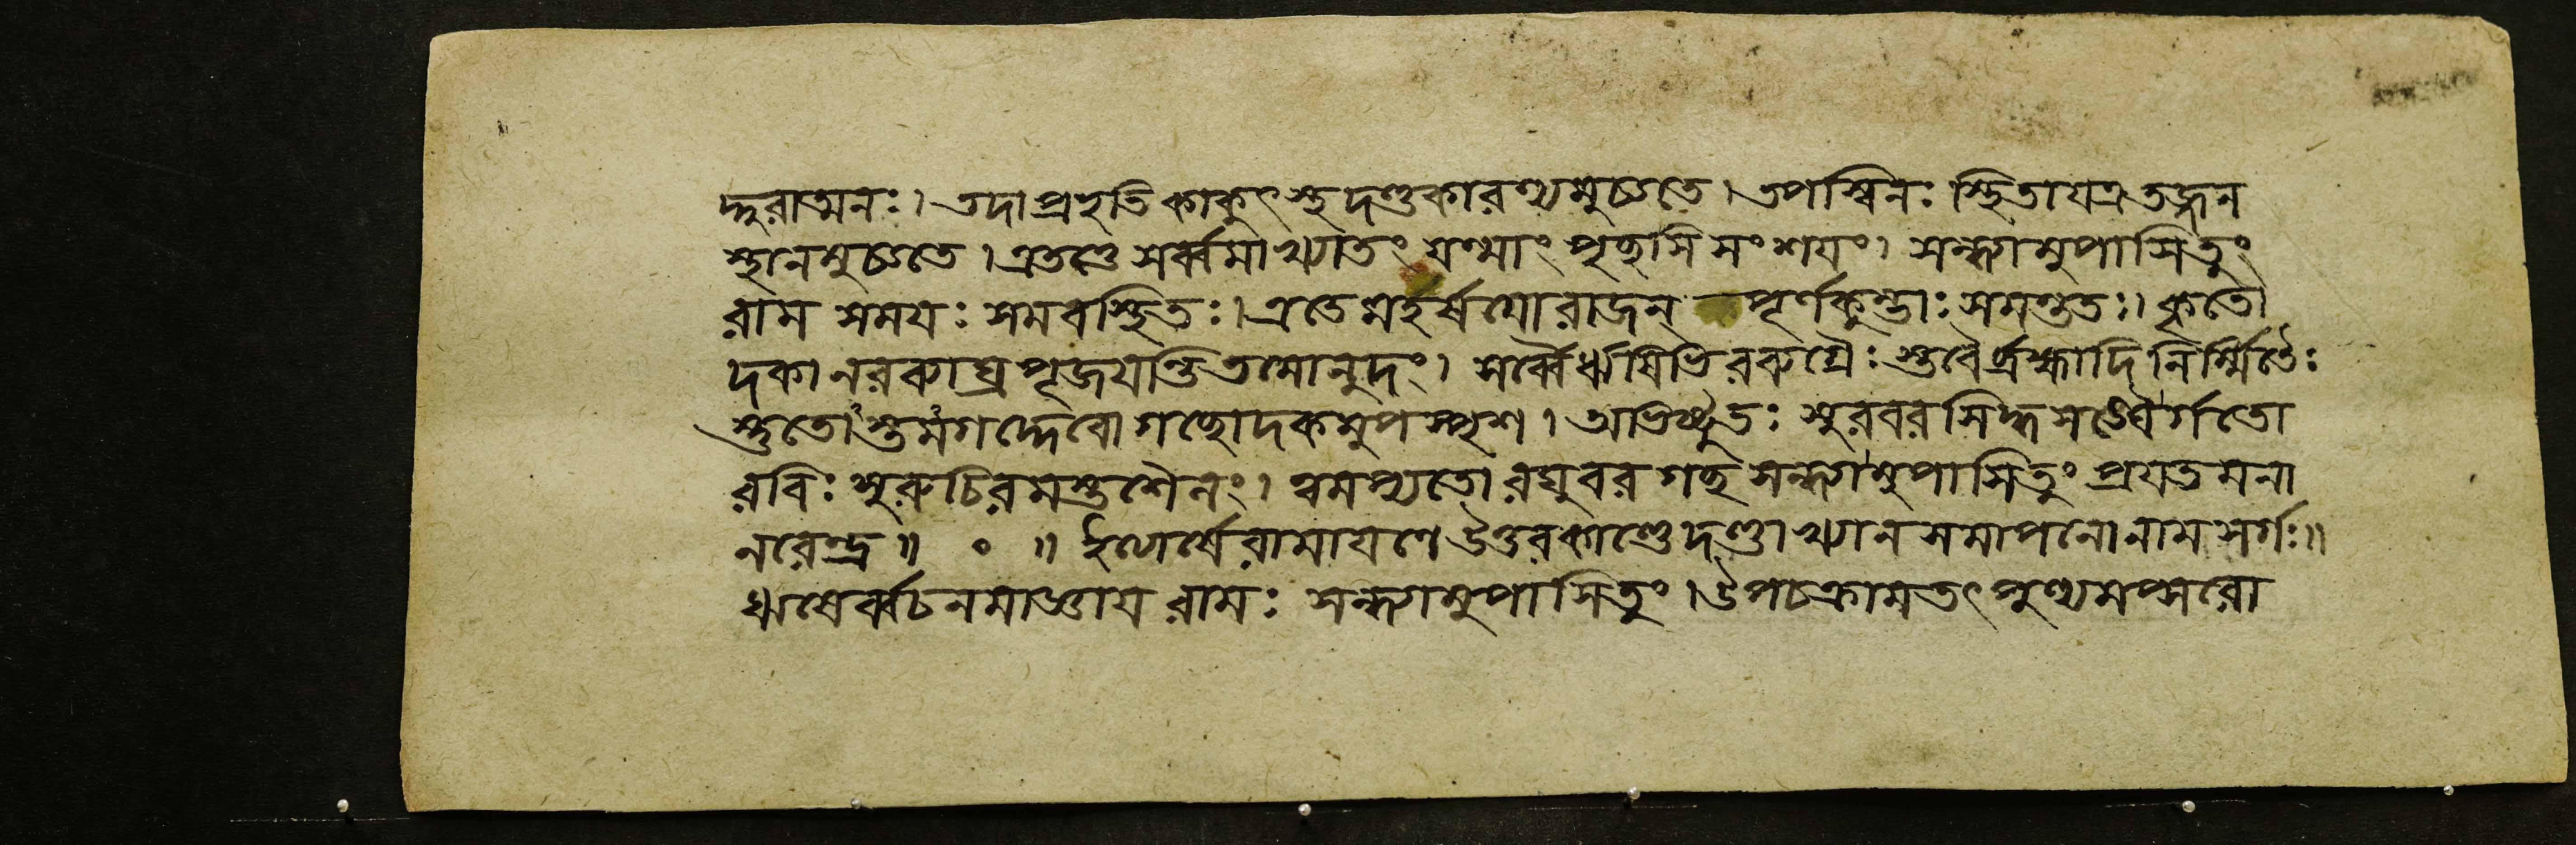 দ্দুরাত্মনঃ। তদাপ্রভৃতি কাকুৎস্থ দণ্ডকারণ্যমুচ্যতে। তপস্বিনঃ স্থিতা যত্র তজ্জন
স্থানমুচ্যতে। এতত্তে সর্ব্বমাখ্যাতং যন্মাং পৃচ্ছসি সংশয়ং। সন্ধ্যামুপাসিতুং
রাম সময়ঃ সমবস্থিতঃ। এতে মহর্ষয়ো রাজন্ পূর্ণকুম্ভাঃ সমন্ততঃ। কৃতো
দকা নরব্যাঘ্র পূজয়ন্তি তমোনুদং। সর্ব্বৈর্ঋষিভিরব্যগ্রৈঃ স্তবৈর্ব্রহ্মাদিনির্ম্মিতৈঃ
স্তুতোঽস্তমগমদ্দেবো গচ্ছোদকমুপস্পৃশ। অভিষ্টুতঃ সুরবরসিদ্ধসঙ্ঘৈর্গতো
রবিঃ সুরুচিরমস্তশৈলং। ত্বমপ্যতো রঘুবর গচ্ছ সন্ধ্যামুপাসিতুং প্রযতমনা
নরেন্দ্র॥ ॰ ॥ ইত্যার্ষে রামায়ণে উত্তরকাণ্ডে দণ্ডাখ্যান সমাপনো নাম সর্গঃ॥
ঋষের্ব্বচনমাজ্ঞায় রামঃ সন্ধ্যামুপাসিতুং। উপচক্রাম তৎ পুণ্যমপ্সরো